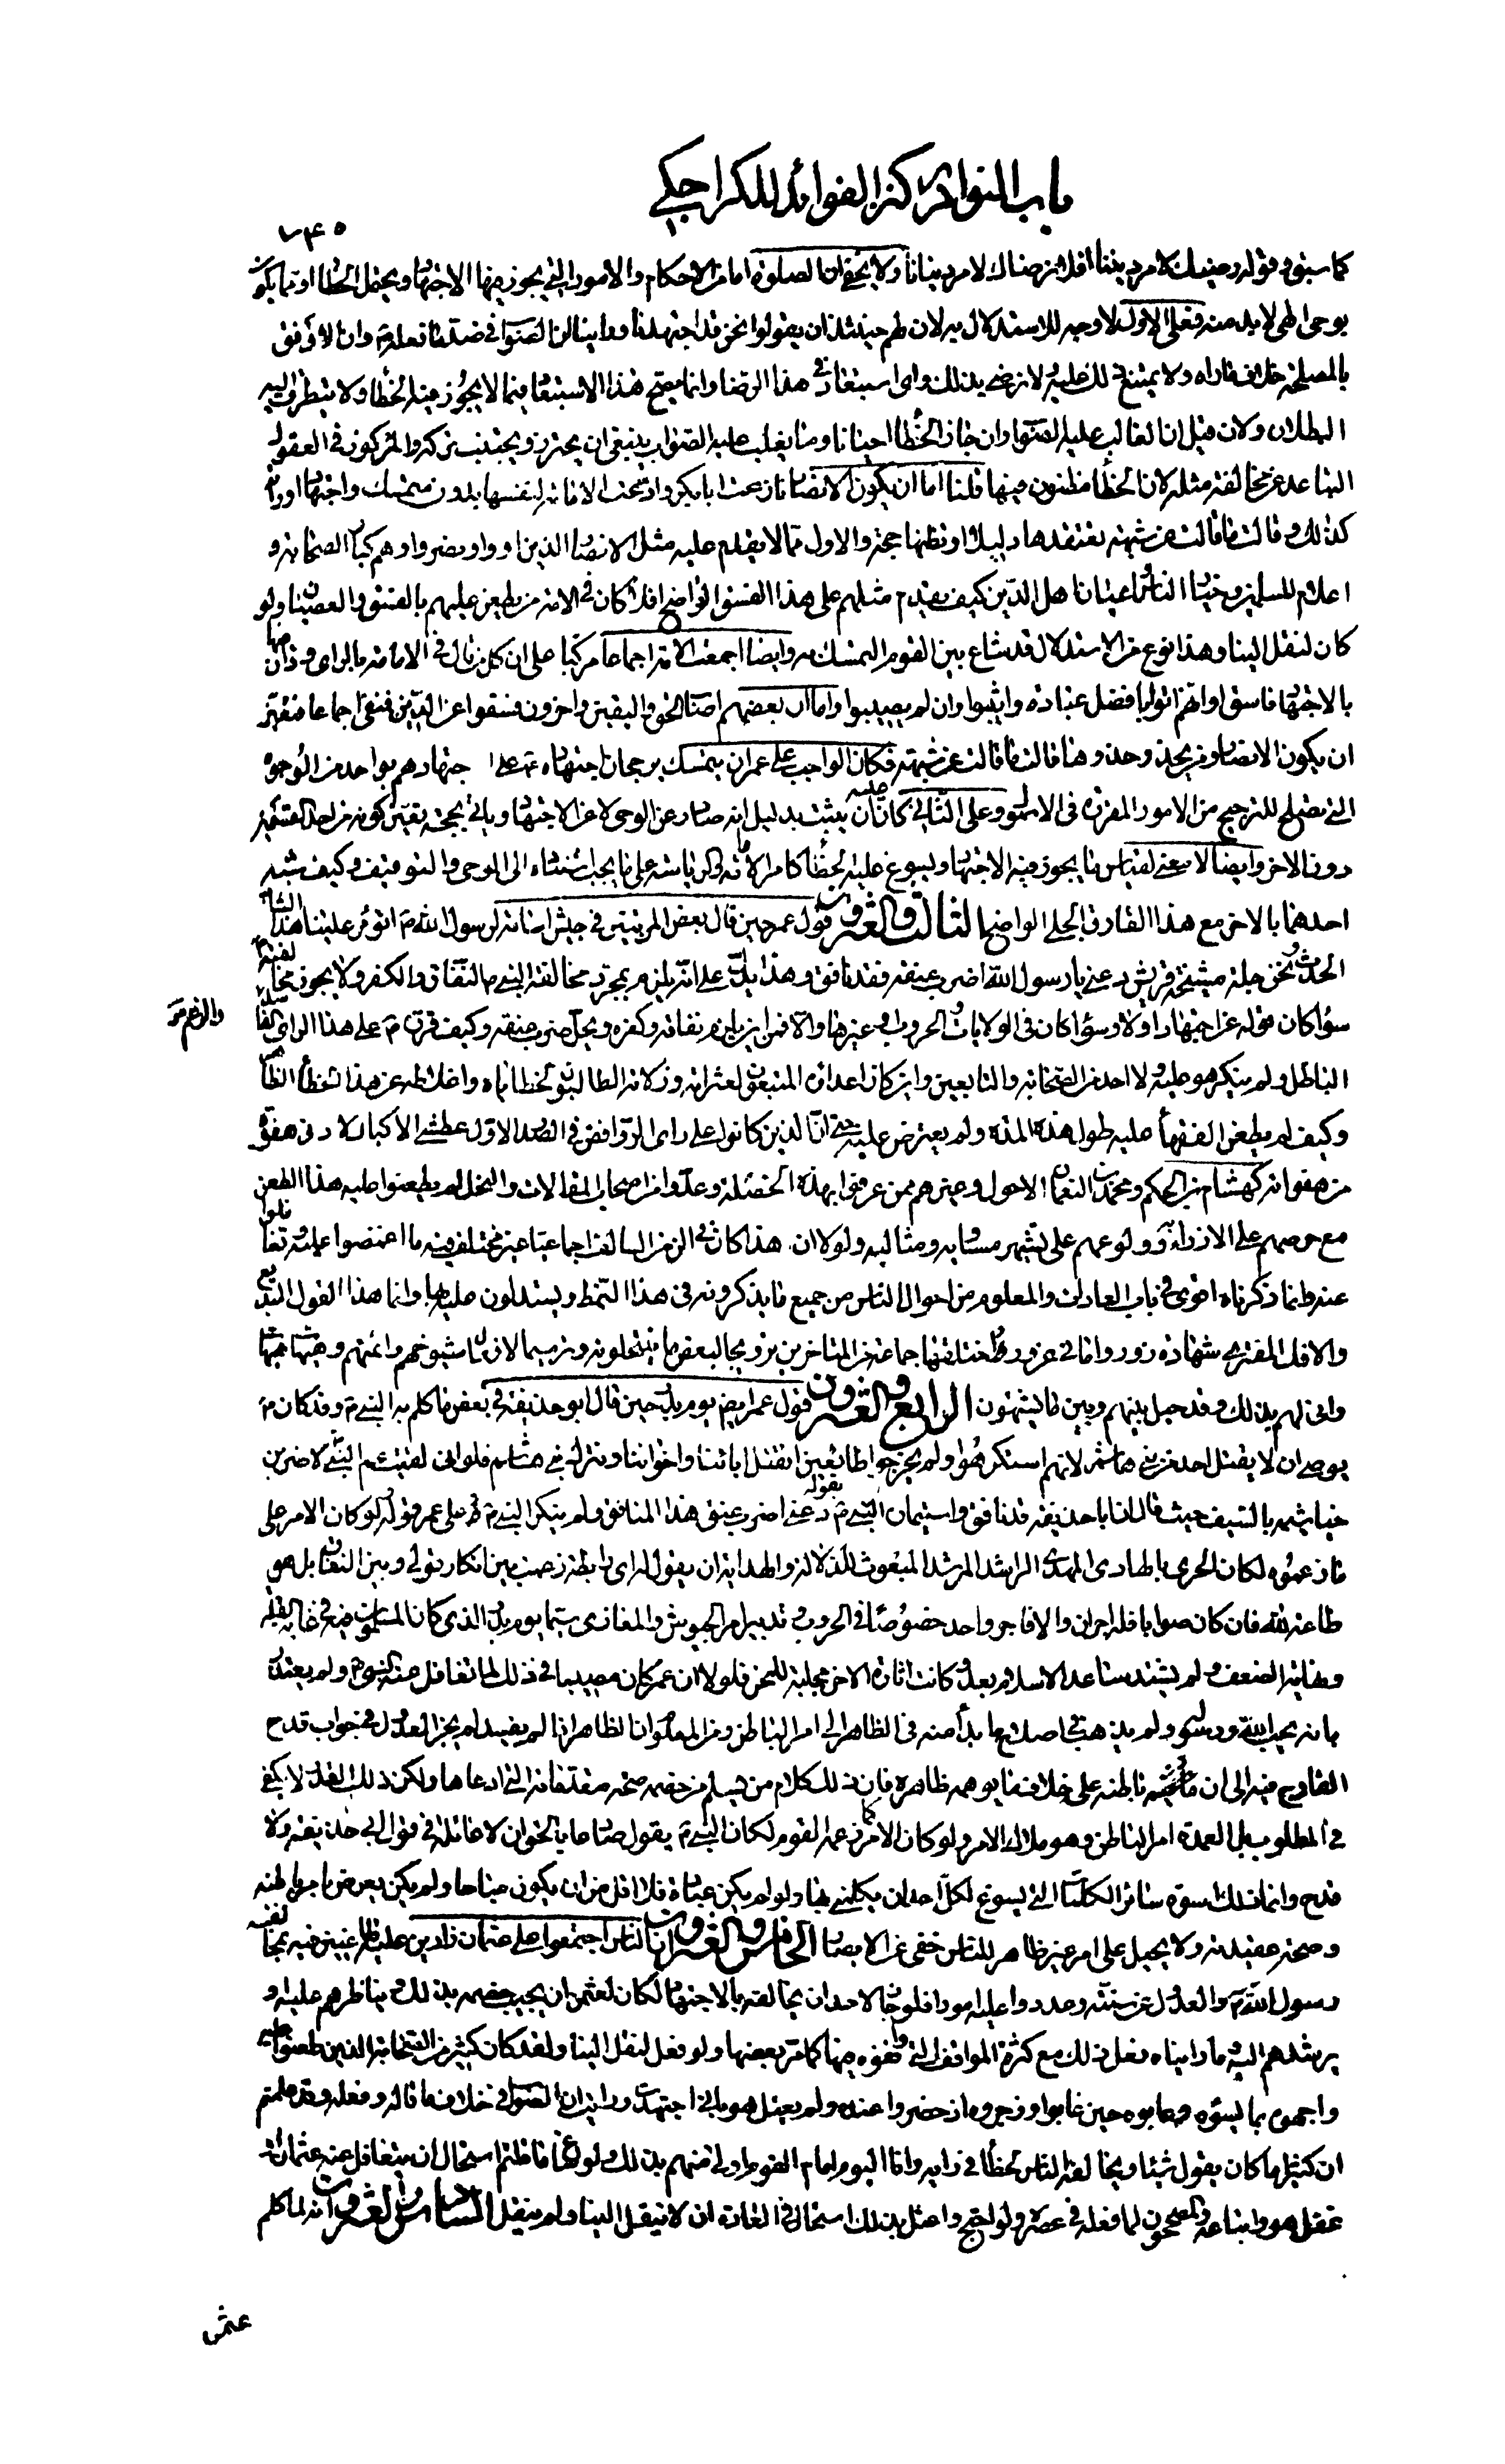 باب النوادر كنز الفوائد للكراجكي
٧٤٥
كما سبق وقوله رضيك لامر ديننا افلا نرضاك لامر دنيانا ولا يخفى ان الصلوة اما من الاحكام والامور التي يجوز فيها الاجتهاد ويحتمل الخطا او مما يكون
بوحي الهي لا بد منه فعلى الاول لا وجه للاستدلال به لان لهم حينئذ ان يقولوا نحن قد اجتهدنا وراينا ان الصواب في ضد ما فعله وان الاوفق
بالمصلحة خلاف ما راه ولا يمتنع ذلك عليه لانه رضي بذلك واي استبعاد في هذا الرضا وانما يصح هذا الاستبعاد فيما لا يجوز فيه الخطا ولا يتطرق اليه
البطلان ولان قيل ان الغالب عليه الصواب وان جاز الخطا احيانا وما يغلب عليه الصواب ينبغي ان يحترز ويجتنب تركه والمركوز في العقول
التباعد عن مخالفة مثله لان الخطا مظنون فيها قلنا اما ان يكون الانصار نازعت ابا بكر وادعت الامامة لنفسها بدون متمسك واجتهاد او راى
كذلك وقالت ما قالت عن شبهة تعتقدها دليلا وتظنها حجة والاول مما لا يقدم عليه مثل الانصار الذين اووا ونصروا وهم كبار الصحابة و
اعلام المسلمين وخيار الناس واعيان اهل الدين كيف يقدم مثلهم على هذا الفسق الواضح افلا كان في الامة من يطعن عليهم بالفسق والعصيان ولو
كان لنقل الينا وهذا نوع من الاستدلال قد شاع بين القوم التمسك به وايضا اجمعت الامة اجماعا مركبا على ان كل من قال في الامامة بالراى
بالاجتهاد فاسق او انهم اتوا بافضل عبادة واثيبوا وان لم يصيبوا واما ان بعضهم اصاب الحق واليقين واخرون فسقوا عن الدين فنفي اجماعا
ان يكون الانصار ومن يحذو حذوها قالت ما قالت عن شبهة فكان الواجب على عمر ان يتمسك برجحان اجتهاده على اجتهادهم بواحد من الوجوه
التي تصلح للترجيح من الامور المقررة في الاصول وعلى الثاني كان عليه ان يثبت بدليل انه صادر عن الوحي لا عن الاجتهاد وياتي بحجة يتعين كونه من احد القسمين
دون الاخر وايضا لا معنى لقياس ما يجوز فيه الاجتهاد ويسوغ عليه الخطا كامر الامامة في الرياسة على ما يجب استناده الى الوحي والتوقيف وكيف شبه
احدهما بالاخر مع هذا الفارق الجلي الواضح الثالث والعشرون قول عمر حين قال بعض المرتدين في جيش اسامة لرسول الله اتؤمر علينا هذا الشاب
الحدث ونحن جلة مشيخة قريش دعني يا رسول الله اضرب عنقه فقد نافق وهذا يدل على انه يلزم بمجرد مخالفة النبي النفاق والكفر ولا يجوز مخالفته
سواء كان قوله عن اجتهاد او لا وسواء كان في الولايات والحروب او غيرها والا فمن اين يلزم نفاقه وكفره ويحل ضرب عنقه وكيف قرره على هذا الراى
الباطل ولم ينكر هو عليه ولا احد من الصحابة والتابعين واين كان اعداؤه المتبعون لعثراته وزلاته الطالبون لخطاياه واغلاطه عن هذا الخطا
وكيف لم يطعن الفقهاء عليه طول هذه المدة ولم يعترض عليه حتى ان الذين كانوا على راى الروافض في الصدر الاول
من هفواته كهشام بن الحكم ومحمد بن النعمان الاحول وغيرهم ممن عرفوا بهذه الخصلة وعدوا من اصحاب المقالات والنحل لم يطعنوا عليه هذا الطعن
مع حرصهم على الازراء به وولوعهم على تشهير مساويه ومثالبه ولولا ان هذا كان في الزمن السالف اجماعيا غير مختلف فيه ما اغمضوا عليه وتغافلوا
عنه وانما ذكرناه اقوى في باب العادات والمعلوم من احوال الناس من جميع ما يذكرونه في هذا النمط ويستدلون عليه بها وانما هذا القول البديع
والافك المفترى شهادة زور واماني غرور اختلقتها جماعة من المتاخرين ترويجا لبعض ما ينتحلونه وترميما لازلات شيوخهم وائمتهم وهيهات هيهات
وانى لهم بذلك وقد حيل بينهم وبين ما يشتهون الرابع والعشرون قول عمر ايضا يوم بدر حين قال ابو حذيفة في بعض ما كلم به النبي وقد كان
يوصي ان لا يقتل احد من بني هاشم لانهم استكرهوا ولم يخرجوا طائعين انقتل اباءنا واخواننا ونترك بني هاشم فلو انى لقيت عم النبي لاضربن
خياشيمه بالسيف حيث قال ان ابا حذيفة قد نافق واستيمان النبي بقوله دعني اضرب عنق هذا المنافق ولم ينكر النبي على عمر قوله ولو كان الامر على
ما زعموه لكان الحري بالهادي المهدي الراشد المرشد المبعوث للدلالة والهداية ان يقول
طاعة لله فان كان صوابا فله اجران والا فاجر واحد خصوصا في الحروب وتدبير امر الجيوش والمغازي سيما يوم بدر الذي كان المسلمون فيه في غاية القلة
ونهاية الضعف ولم يشتد ساعد الاسلام بعد وكانت اثارة الاخر مجلبة للمحن فلولا ان عمر كان مصيبا في ذلك لما تغافل عنه النبي ولم يعتذر
بانه يحب الله ورسوله ولم يذهب في اصلاح ما بدا منه في الظاهر الى امر الباطن ومن المعلوم ان الظاهر اذا لم يفسد لم يجز العدول في جواب قدح
القادح فيه الى ان باطنه على خلاف ما يوهمه ظاهره فان ذلك كلام من يسلم من خصمه صحة مقدماته التي ادعاها ولكن ذلك القدر لا يكفي
في المطلوب بل العمدة امر الباطن وهو ملاك الامر ولو كان الامر كما زعمه القوم لكان النبي يقول صباحا يا اخوان لا غائلة في قول ابي حذيفة ولا
قدح وانما ذلك اسوة سائر الكلمات التي يسوغ لكل احد ان يتكلم بها ولو لم يكن عبادة فلا اقل من ان يكون مباحا ولم يكن يعرض بامر باطنه
وصحة عقيدته ولا يحيل على امر غير ظاهر للناس خفي عن الابصار الخامس والعشرون ان الناس اجتمعوا على عثمان زارين عليه طاعنين فيه بمخالفته
رسول الله والعدول عن سنته وعددوا عليه امورا فلو جاز لاحد ان يخالفه بالاجتهاد لكان لعثمان ان يجيب خصمه بذلك ويناظرهم عليه و
يرشدهم اليه وما راينا فعل ذلك مع كثرة المواقف التي وقفوه فيها كما مر بعضها ولو فعل لنقل الينا ولقد كان كثير من الصحابة الذين طعنوا عليه
واجهوه بما يسؤه وعابوه حين غابوا وزجروه اذ حضروا عنده ولم يقل هو انى اجتهدت ورايت ان الصواب في خلاف ما قاله وفعله وقد علمتم
ان كثيرا ما كان يقول شيئا ويخالفه الناس لخطا في رايه وانا اليوم امام القوم
عقل هو واتباعه والمصححون لما فعله في عصره ولو احتج واعتل بذلك استحال في العادة ان لا ينقل الينا ولم ينقل السادس والعشرون انه لما كلم
عثمن